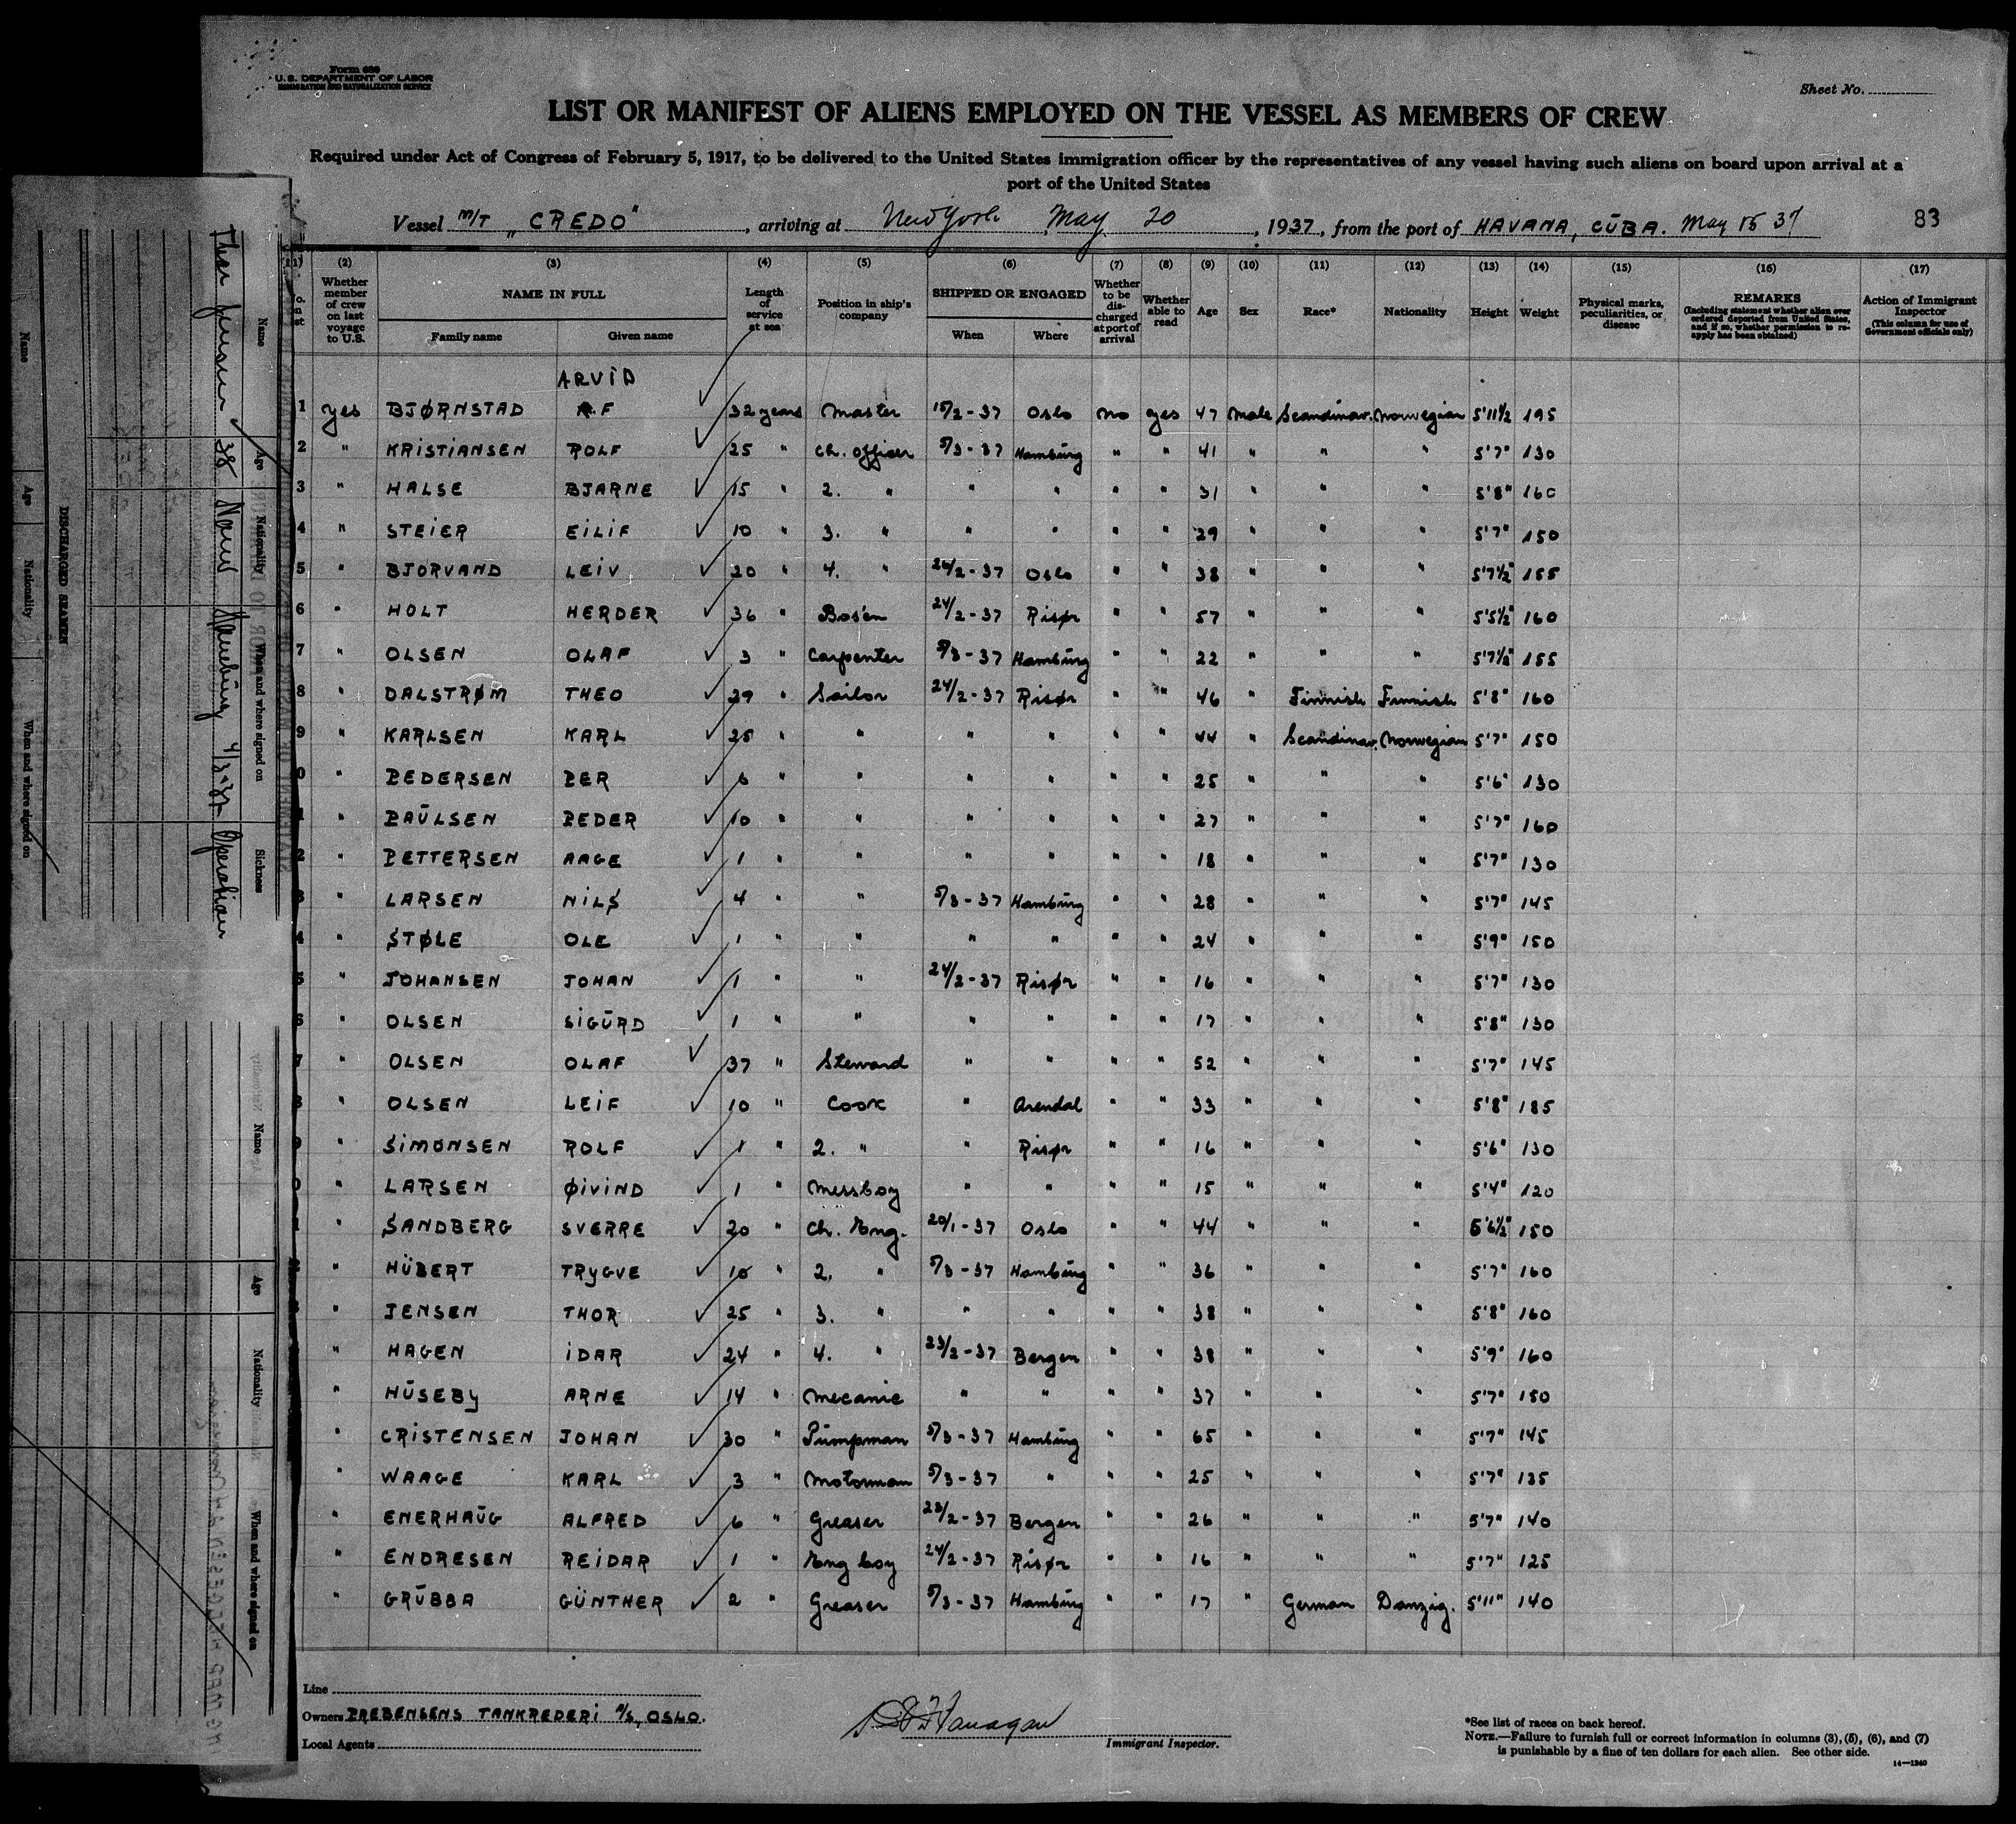 Form 689
U.S. DEPARTMENT OF LABOR
IMMIGRATION AND NATURALIZATION SERVICE
Sheet No.
LIST OR MANIFEST OF ALIENS EMPLOYED ON THE VESSEL AS MEMBERS OF CREW
Required under Act of Congress of February 5, 1917, to be delivered to the United States immigration officer by the representatives of any vessel having such aliens on board upon arrival at a
port of the United States
Vessel M/T "CREDO", arriving at New York May 20, 1937, from the port of HAVANA, CUBA. May 15 37
83
(1) (2) (3) (4) (5) (6) (7) (8) (9) (10) (11) (12) (13) (14) (15) (16) (17)
Whether member of crew on last voyage to U.S.
NAME IN FULL
Family name Given name
Length of service at sea
Position in ship's company
SHIPPED OR ENGAGED
When Where
Whether to be discharged at port of arrival
Whether able to read
Age
Sex
Race*
Nationality
Height
Weight
Physical marks, peculiarities, or disease
REMARKS
(Including statement whether alien ever ordered deported from United States, and if so, whether permission to reapply has been obtained)
Action of Immigrant Inspector
(This column for use of Government officials only)
ARVID
1 yes BJØRNSTAD A.F 32 years Master 15/2-37 Oslo no yes 47 male Scandinav. Norwegian 5'11½ 195
2 " KRISTIANSEN ROLF 25 " Ch. officer 5/3-37 Hamburg " " 41 " " " 5'7" 130
3 " HALSE BJARNE 15 " 2. " " " " " 31 " " " 5'8" 160
4 " STEIER EILIF 10 " 3. " " " " " 29 " " " 5'7" 150
5 " BJORVAND LEIV 20 " 4. " 24/2-37 Oslo " " 38 " " " 5'7½" 155
6 " HOLT HERDER 36 " Bos'en 24/2-37 Risør " " 57 " " " 5'5½" 160
7 " OLSEN OLAF 3 " Carpenter 5/3-37 Hamburg " " 22 " " " 5'7½" 155
8 " DALSTRØM THEO 29 " Sailor 24/2-37 Risør " " 46 " Finnish Finnish 5'8" 160
9 " KARLSEN KARL 25 " " " " " " 44 " Scandinav. Norwegian 5'7" 150
0 " PEDERSEN PER 6 " " " " " " 25 " " " 5'6" 130
1 " PAULSEN PEDER 10 " " " " " " 27 " " " 5'7" 160
2 " PETTERSEN AAGE 1 " " " " " " 18 " " " 5'7" 130
3 " LARSEN NILS 4 " " 5/3-37 Hamburg " " 28 " " " 5'7" 145
4 " STØLE OLE 1 " " " " " " 24 " " " 5'9" 150
5 " JOHANSEN JOHAN 1 " " 24/2-37 Risør " " 16 " " " 5'7" 130
6 " OLSEN SIGURD 1 " " " " " " 17 " " " 5'8" 130
7 " OLSEN OLAF 37 " Steward " " " " 52 " " " 5'7" 145
8 " OLSEN LEIF 10 " Cook " Arendal " " 33 " " " 5'8" 185
9 " SIMONSEN ROLF 1 " 2. " " Risør " " 16 " " " 5'6" 130
0 " LARSEN ØIVIND 1 " Messboy " " " " 15 " " " 5'4" 120
1 " SANDBERG SVERRE 20 " Ch. Eng. 20/1-37 Oslo " " 44 " " " 5'6½" 150
" HUBERT TRYGVE 16 " 2. " 5/3-37 Hamburg " " 36 " " " 5'7" 160
" JENSEN THOR 25 " 3. " " " " " 38 " " " 5'8" 160
" HAGEN IDAR 24 " 4. " 23/2-37 Bergen " " 38 " " " 5'9" 160
" HUSEBY ARNE 14 " Mecanic " " " " 37 " " " 5'7" 150
" CRISTENSEN JOHAN 30 " Pumpman 5/3-37 Hamburg " " 65 " " " 5'7" 145
" WAAGE KARL 3 " Motorman 5/3-37 " " " 25 " " " 5'7" 135
" ENERHAUG ALFRED 6 " Greaser 23/2-37 Bergen " " 26 " " " 5'7" 140
" ENDRESEN REIDAR 1 " Eng boy 24/2-37 Risør " " 16 " " " 5'7" 125
" GRUBBA GÜNTHER 2 " Greaser 5/3-37 Hamburg " " 17 " German Danzig. 5'11" 140
Line
Owners PREBENSENS TANKREDERI A/S, OSLO.
Local Agents
Immigrant Inspector.
*See list of races on back hereof.
NOTE.—Failure to furnish full or correct information in columns (3), (5), (6), and (7)
is punishable by a fine of ten dollars for each alien. See other side.
14—1240
DISCHARGED SEAMEN
Name Age Nationality When and where signed on
Name Age Nationality When and where signed on Sickness
Thor Jensen 38 Norw Hamburg 4/3-37 Operation
Name Age Nationality When and where signed on